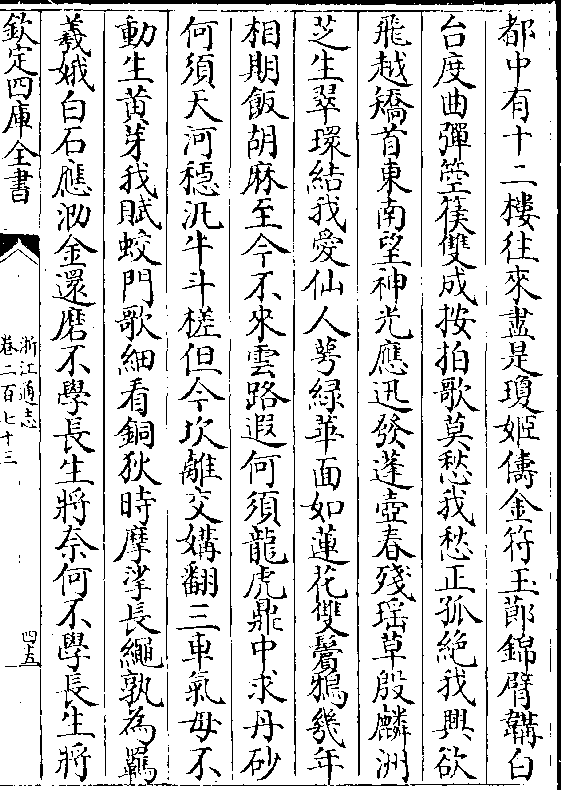 都中有十二樓往來盡是瓊姬儔金符玉節錦臂韝白
台度曲彈箜篌雙成按拍歌莫愁我愁正孤絶我興欲
飛越矯首東南望神光應迅發蓬壺春殘瑶草殷麟洲
芝生翠環結我愛仙人萼緑華面如蓮花雙鬢鴉幾年
相期飯胡麻至今不來雲路遐何須龍虎鼎中求丹砂
何須天河穩汎牛斗槎但令坎離交媾翻三車氣毋不
動生黄芽我賦蛟門歌細看銅狄時摩挲長繩孰為羈
羲娥白石應泐金還磨不學長生將奈何不學長生將
欽定四庫全書
浙江通志
卷二百七十三
四五